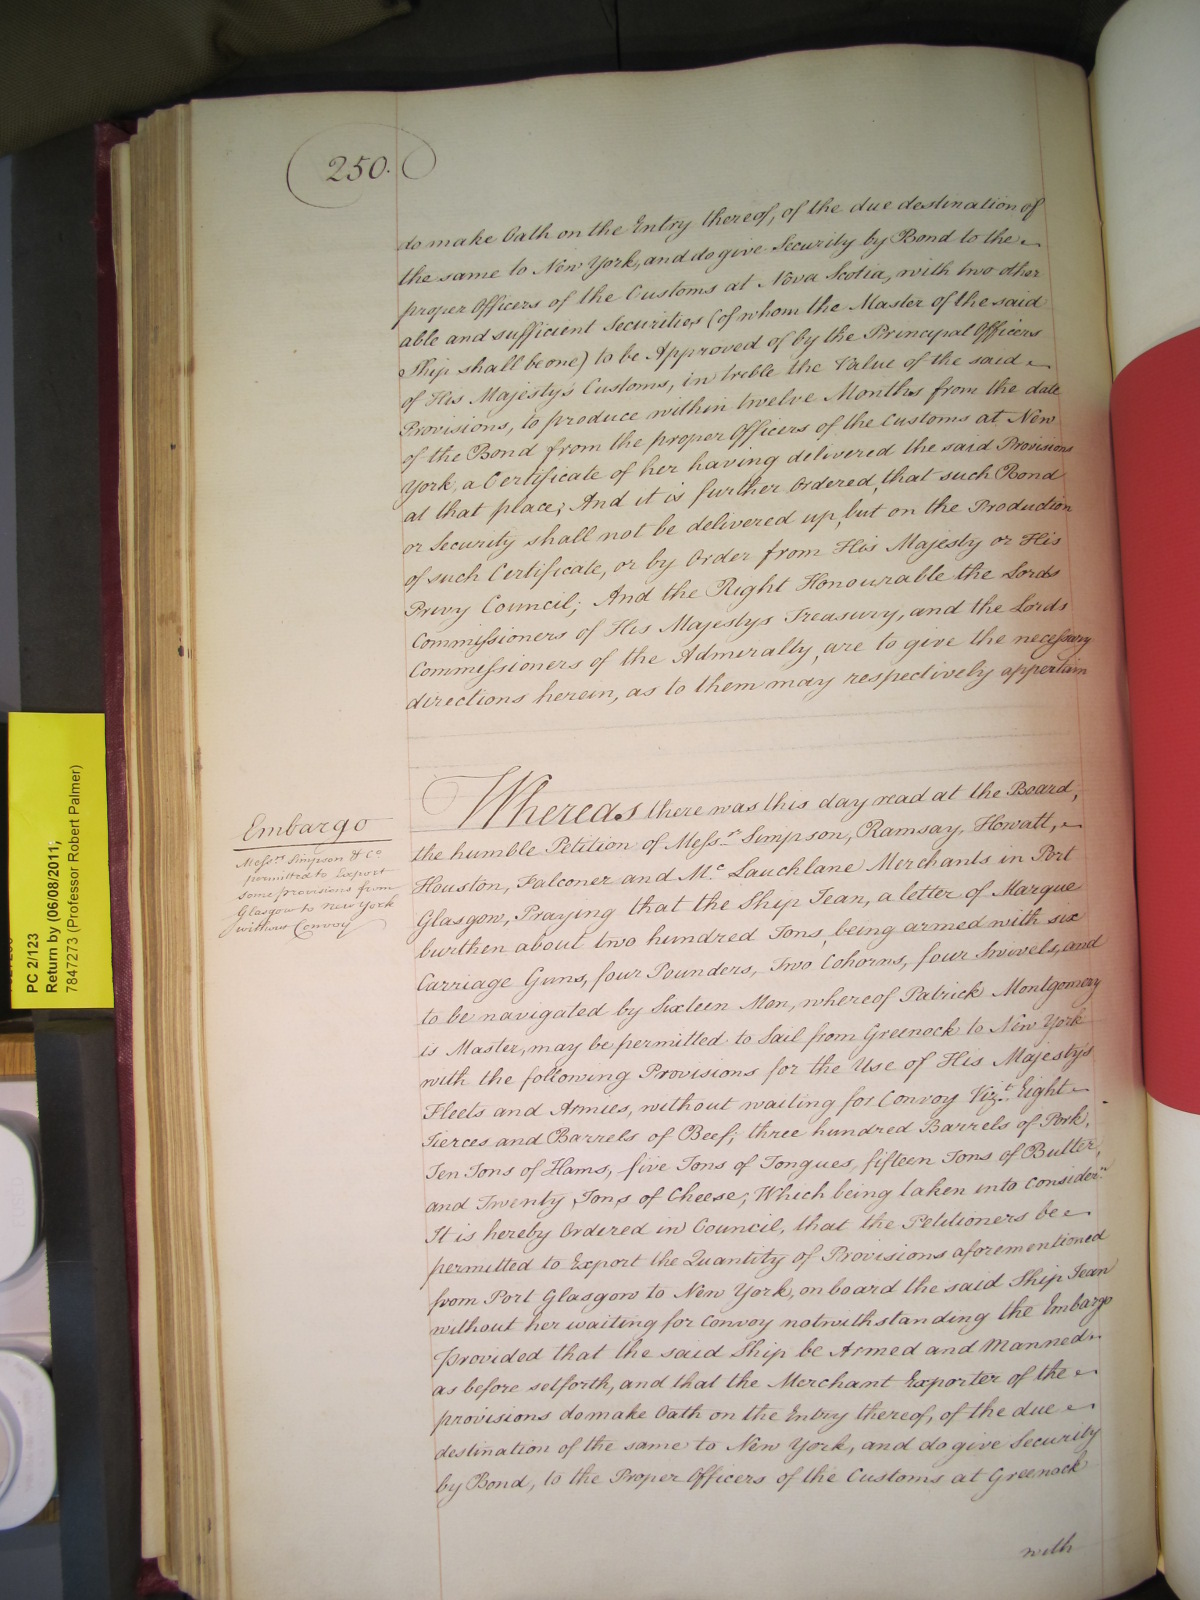 250.
do make Oath on the Entry thereof, of the due destination of
the same to New York, and do give Security by Bond to the
proper Officers of the Customs at Nova Scotia, with two other
able and sufficient Securities (of whom the Master of the said
Ship shall be one) to be Approved of by the Principal Officers
of His Majestys Customs, in treble the Value of the said
Provisions, to produce within twelve Months from the date
of the Bond from the proper Officers of the Customs at New
York, a Certificate of her having delivered the said Provisions
at that place; And it is further Ordered, that such Bond
or Security shall not be delivered up, but on the Production
of such Certificate, or by Order from His Majesty or His
Privy Council; And the Right Honourable the Lords
Commissioners of His Majestys Treasury, and the Lords
Commissioners of the Admiralty, are to give the necessary
directions herein, as to them may respectively appertain
Embargo
Messrs. Simpson & Co.
permitted to Export
some provisions from
Glasgow to New York
without Convoy
Whereas there was this day read at the Board,
the humble Petition of Messrs. Simpson, Ramsay, Howatt,
Houston, Falconer and Mc. Lauchlane Merchants in Port
Glasgow, Praying that the Ship Jean, a letter of Marque
burthen about two hundred Tons, being armed with six
Carriage Guns, four Pounders, Two Cohorns, four Swivels, and
to be navigated by Sixteen Men, whereof Patrick Montgomery
is Master, may be permitted to Sail from Greenock to New York
with the following Provisions for the Use of His Majestys
Fleets and Armies, without waiting for Convoy Vizt. Eight
Tierces and Barrels of Beef; three hundred Barrels of Pork,
Ten Tons of Hams, five Tons of Tongues, fifteen Tons of Butter,
and Twenty Tons of Cheese; Which being taken into Considern.
It is hereby Ordered in Council, that the Petitioners be
permitted to Export the Quantity of Provisions aforementioned
from Port Glasgow to New York, on board the said Ship Jean
without her waiting for Convoy notwithstanding the Embargo
Provided that the said Ship be Armed and Manned
as before setforth, and that the Merchant Exporter of the
provisions do make Oath on the Entry thereof, of the due
destination of the same to New York, and do give Security
by Bond, to the Proper Officers of the Customs at Greenock
with
PC 2/123
Return by (06/08/2011;
7847273 (Professor Robert Palmer)